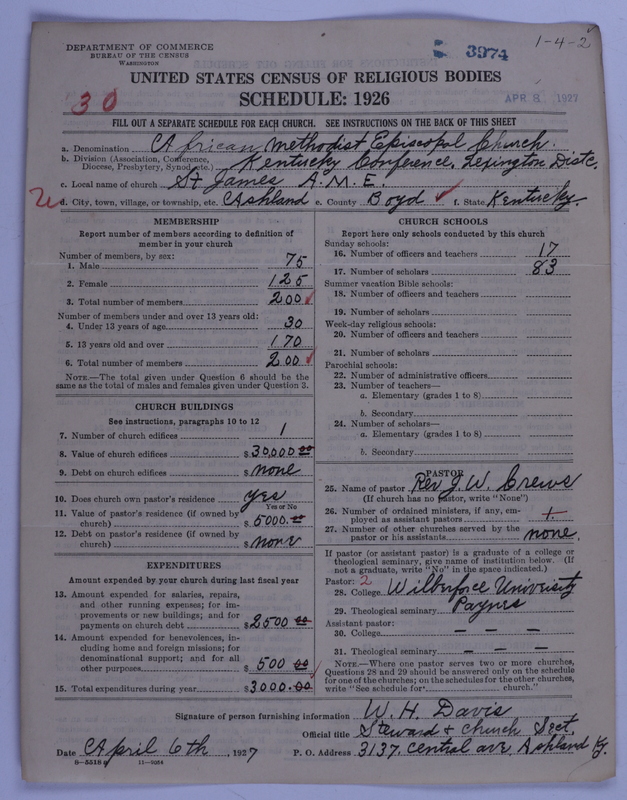 DEPARTMENT OF COMMERCE
BUREAU OF THE CENSUS
WASHINGTON
3974
1-4-2
UNITED STATES CENSUS OF RELIGIOUS BODIES
SCHEDULE: 1926
30
APR 8 1927
FILL OUT A SEPARATE SCHEDULE FOR EACH CHURCH. SEE INSTRUCTIONS ON THE BACK OF THIS SHEET
a. Denomination African Methodist Episcopal Church.
b. Division (Association, Conference, Diocese, Presbytery, Synod, etc.) Kentucky Conference. Lexington Distc.
c. Local name of church St James A.M.E.
d. City, town, village, or township, etc. Ashland e. County Boyd f. State Kentucky.
MEMBERSHIP
Report number of members according to definition of member in your church
Number of members, by sex:
1. Male 75
2. Female 125
3. Total number of members 200
Number of members under and over 13 years old:
4. Under 13 years of age 30
5. 13 years old and over 170
6. Total number of members 200
NOTE.—The total given under Question 6 should be the same as the total of males and females given under Question 3.
CHURCH BUILDINGS
See instructions, paragraphs 10 to 12
7. Number of church edifices 1
8. Value of church edifices $30,000 00
9. Debt on church edifices $none
10. Does church own pastor's residence yes
Yes or No
11. Value of pastor's residence (if owned by church) $5000.00
12. Debt on pastor's residence (if owned by church) $none
EXPENDITURES
Amount expended by your church during last fiscal year
13. Amount expended for salaries, repairs, and other running expenses; for improvements or new buildings; and for payments on church debt $2500 00
14. Amount expended for benevolences, including home and foreign missions; for denominational support; and for all other purposes $500 00
15. Total expenditures during year $3000.00
CHURCH SCHOOLS
Report here only schools conducted by this church
Sunday schools:
16. Number of officers and teachers 17
17. Number of scholars 83
Summer vacation Bible schools:
18. Number of officers and teachers
19. Number of scholars
Week-day religious schools:
20. Number of officers and teachers
21. Number of scholars
Parochial schools:
22. Number of administrative officers
23. Number of teachers—
a. Elementary (grades 1 to 8)
b. Secondary
24. Number of scholars—
a. Elementary (grades 1 to 8)
b. Secondary
PASTOR
25. Name of pastor Rev J. W. Crews
(If church has no pastor, write "None")
26. Number of ordained ministers, if any, employed as assistant pastors
27. Number of other churches served by the pastor or his assistants none.
If pastor (or assistant pastor) is a graduate of a college or theological seminary, give name of institution below. (If not a graduate, write "No" in the space indicated.)
Pastor: 2
28. College Wilberforce University
29. Theological seminary Paynes
Assistant pastor:
30. College — — —
31. Theological seminary — — —
NOTE.—Where one pastor serves two or more churches, Questions 28 and 29 should be answered only on the schedule for one of the churches; on the schedules for the other churches, write "See schedule for church."
Signature of person furnishing information W. H. Davis
Official title Steward & Church Sect.
Date April 6th, 1927 P. O. Address 3137. Central ave Ashland Ky.
8-5518a 11-9054